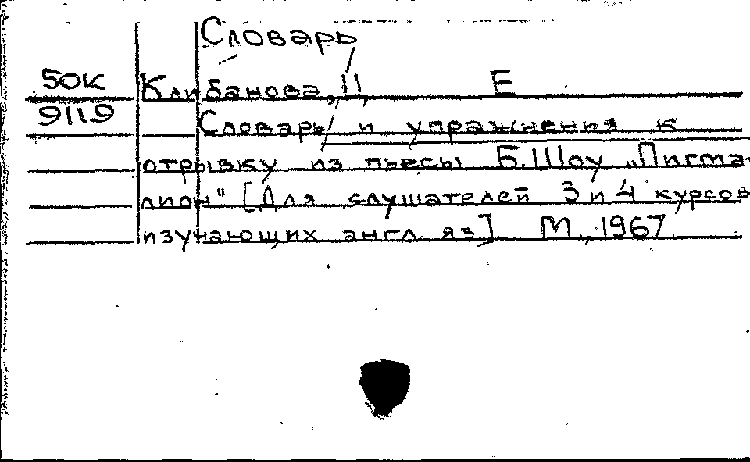 Словарь
50К Клибанова, Е
9119 Словарь и упражнения к
отрывку из пьесы Б. Шоу „Пигма-
лион" [Для слушателей 3 и 4 курсов
изучающих англ яз] М, 1967